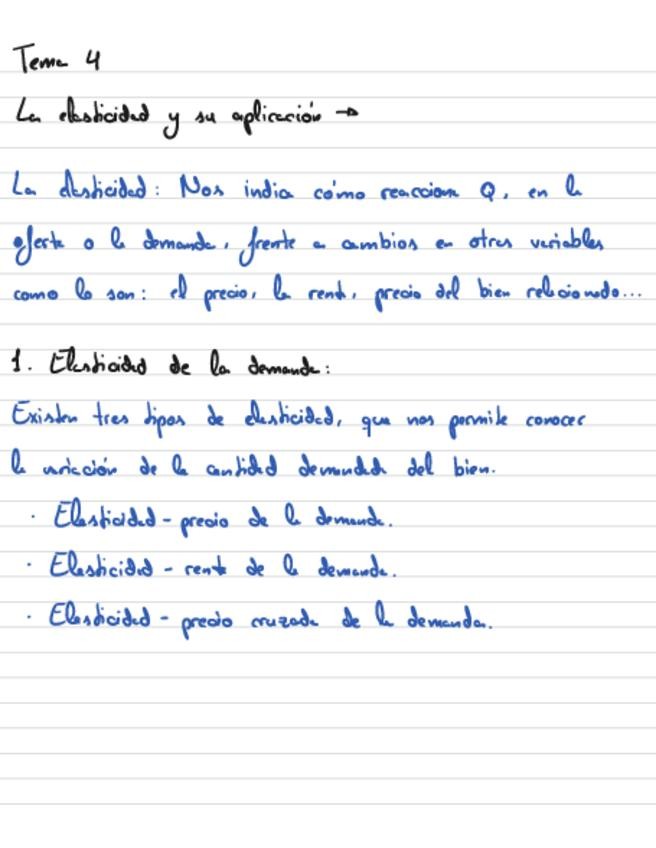 Tema 4
La elasticidad y su aplicación →
La elasticidad: Nos indica cómo reacciona Q, en la
oferta o la demanda, frente a cambios en otras variables
como lo son: el precio, la renta, precio del bien relacionado...
1. Elasticidad de la demanda:
Existen tres tipos de elasticidad, que nos permite conocer
la variación de la cantidad demandada del bien.
· Elasticidad - precio de la demanda.
· Elasticidad - renta de la demanda.
· Elasticidad - precio cruzada de la demanda.